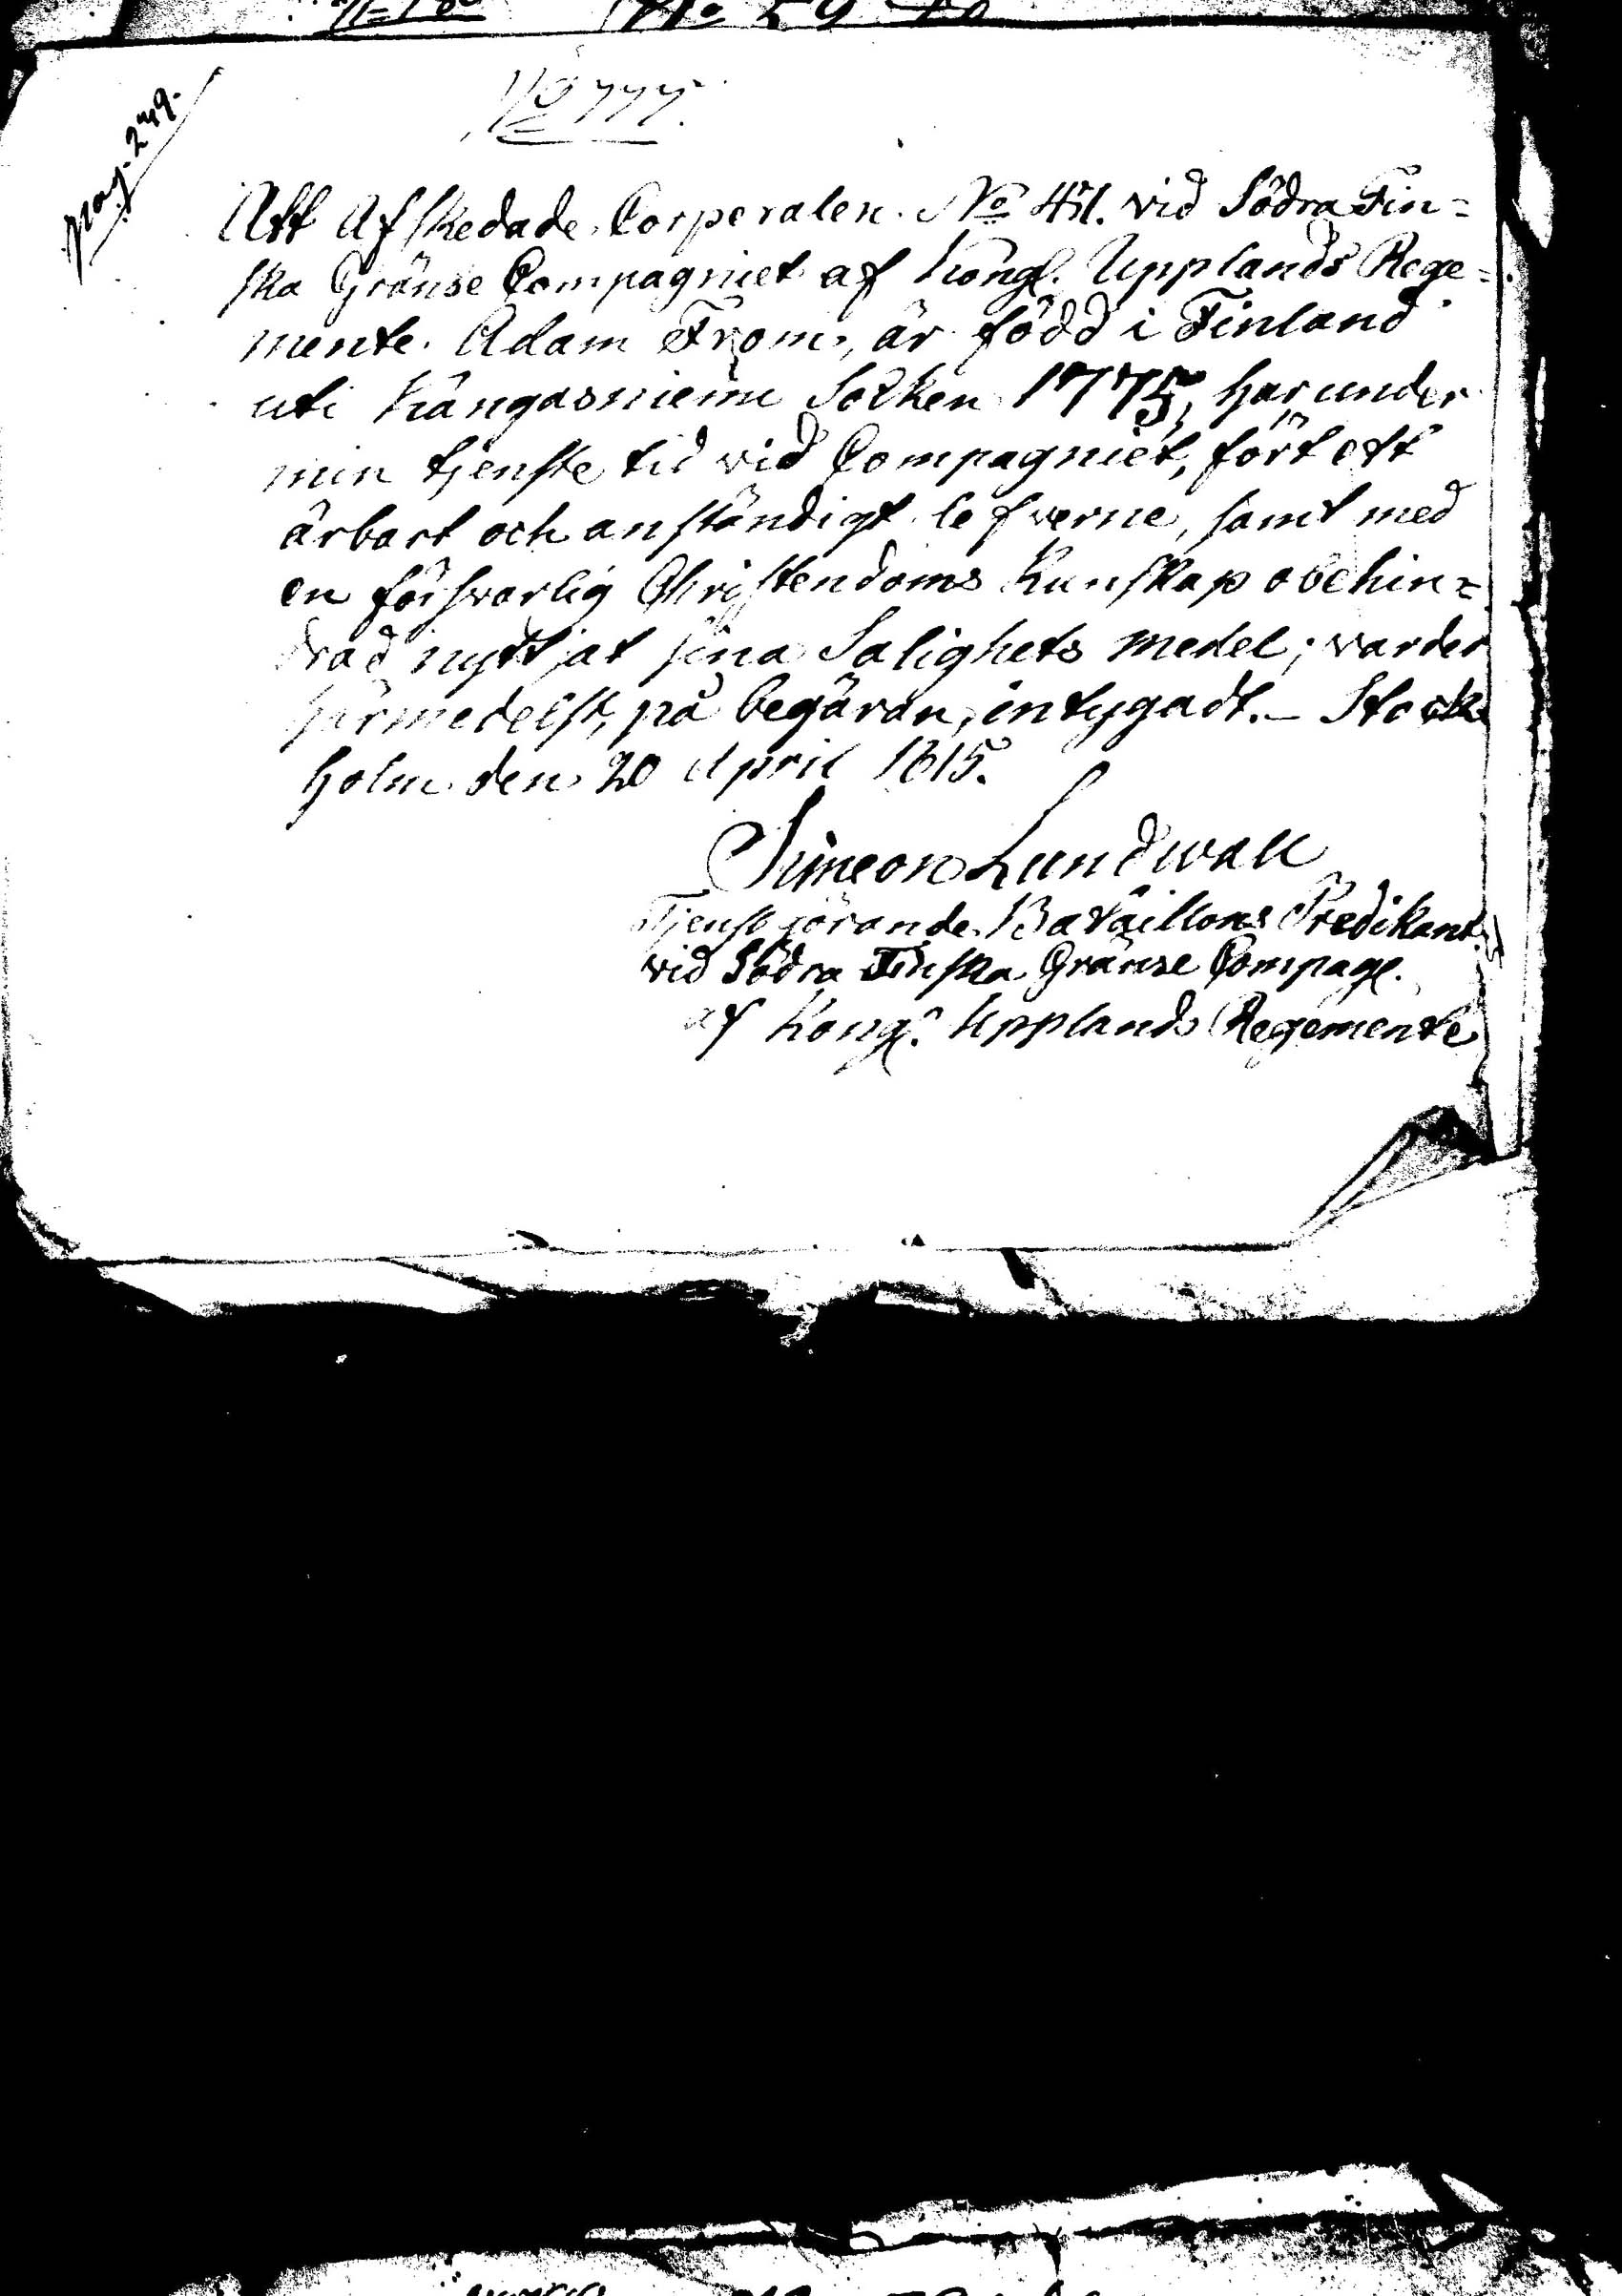 No 777.
pag. 249.
Att Afskedade Corporalen No 471. vid Södra Fin=
ska Gränse Compagniet af Kongl. Upplands Rege=
mente. Adam From, är född i Finland
uti Kangasniemi Socken 1775, har under
min tjenste tid vid Compagniet, fört ett
ärbart och anständigt lefverne, samt med
en försvarlig Christendoms Kunskap obehin=
drad nyttjat sina Salighets medel; varder
härmedelst, på begäran, intygadt. – Stock
holm den 20 April 1815.
Simeon Lundwall
Tjenstgörande Bataillons Predikant
vid Södra Finska Gränse Compagl.
af Kongl. Upplands Regemente